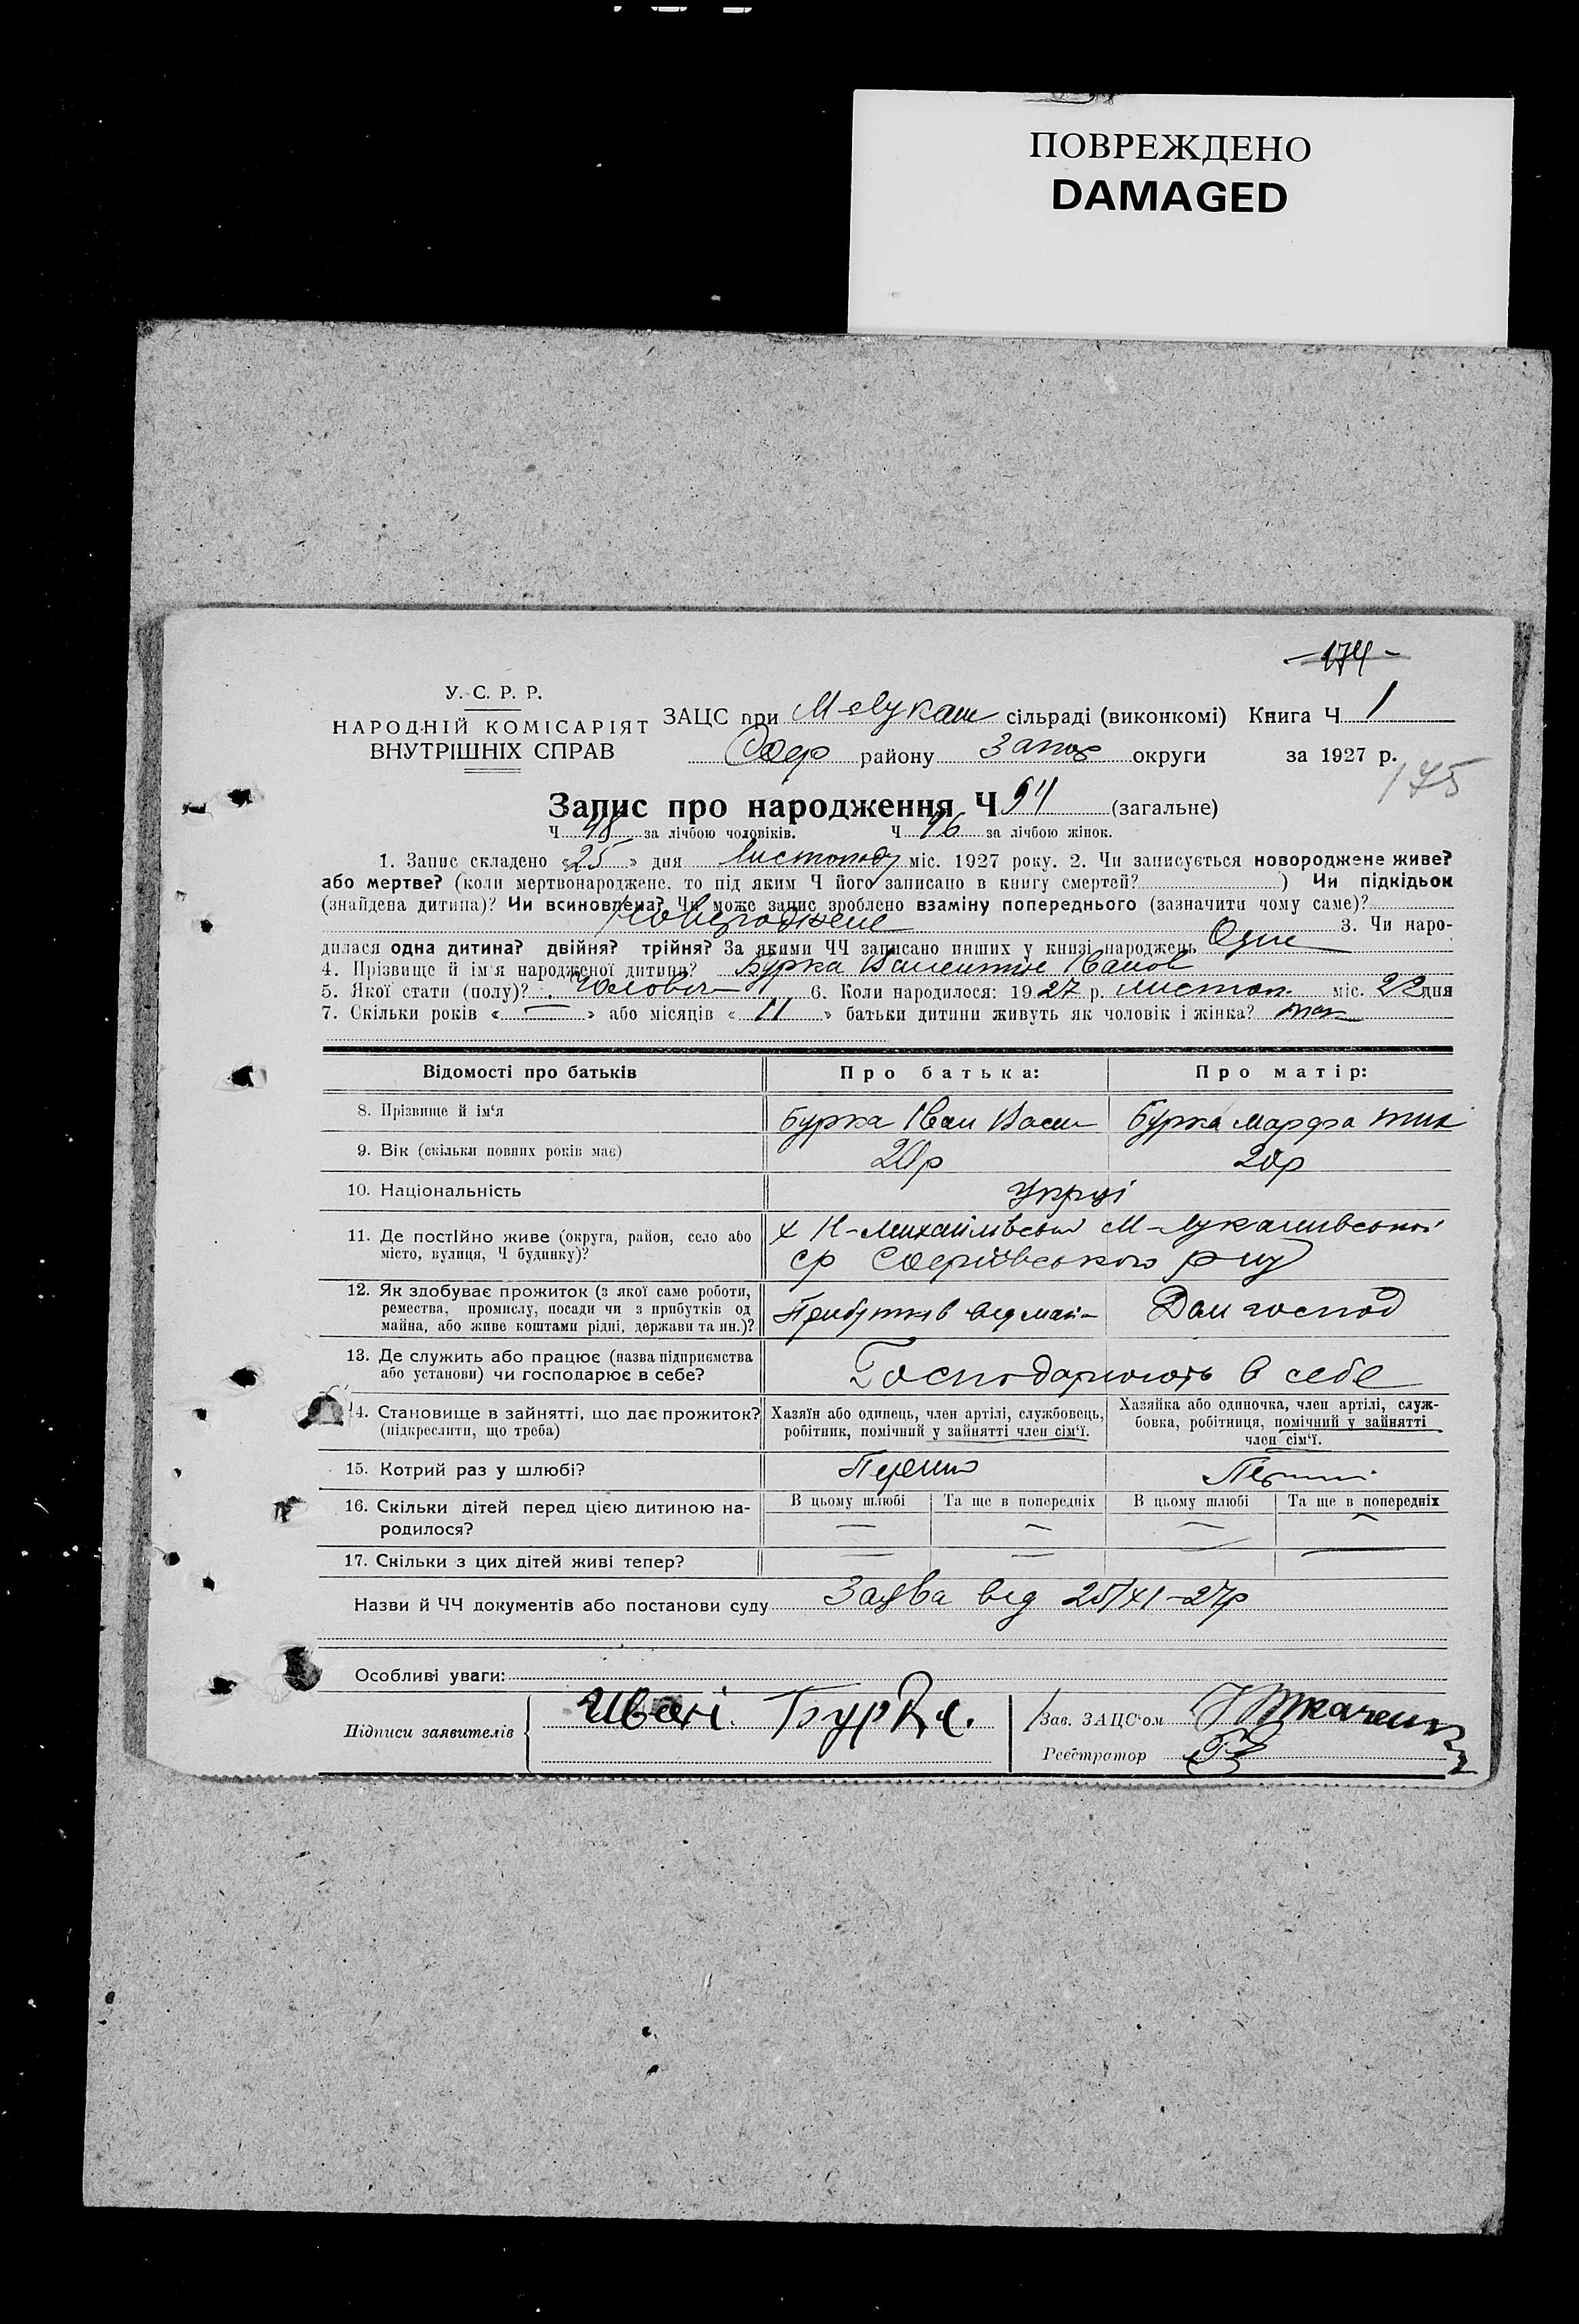 ПОВРЕЖДЕНО
DAMAGED
- 174 -
У. С. Р. Р.
НАРОДНІЙ КОМІСАРІЯТ
ВНУТРІШНІХ СПРАВ
ЗАЦС при М-Лукаш сільраді (виконкомі) Книга Ч 1
Софі району Запор округи за 1927 р.
175
Запис про народження Ч 94 (загальне)
Ч 48 за лічбою чоловіків. Ч 46 за лічбою жінок.
1. Запис складено « 25 » дня листопаду міс. 1927 року. 2. Чи записується новороджене живе?
або мертве? (коли мертвонароджене, то під яким Ч його записано в книгу смертей? ) Чи підкідьок
(знайдена дитина)? Чи всиновлена? Чи може запис зроблено взаміну попереднього (зазначити чому саме)?
Новороджене 3. Чи наро-
дилася одна дитина? двійня? трійня? За якими ЧЧ записано инших у книзі народжень Одне
4. Прізвище й ім'я народженої дитини? Бурка Валентин Іванов
5. Якої стати (полу)? Чоловіч 6. Коли народилося: 1927 р. листоп. міс. 22 дня
7. Скільки років « — » або місяців « 11 » батьки дитини живуть як чоловік і жінка? так
Відомості про батьків Про батька: Про матір:
8. Прізвище й ім'я Бурка Іван Васи Бурка Марфа Тих
9. Вік (скільки повних років має) 20р 20р
10. Національність Укрці
11. Де постійно живе (округа, район, село або місто, вулиця, Ч будинку)? х Н-Михайлівськ М-Лукашівської
ср Софіївського р-ну
12. Як здобуває прожиток (з якої саме роботи, ремества, промислу, посади чи з прибутків од майна, або живе коштами рідні, держави та ин.)? Прибутків від май- Дом господ
13. Де служить або працює (назва підприємства або установи) чи господарює в себе? Господарюють в себе
14. Становище в зайнятті, що дає прожиток? (підкреслити, що треба) Хазяїн або одинець, член артілі, службовець, робітник, помічний у зайнятті член сім'ї. Хазяйка або одиночка, член артілі, служ-
бовка, робітниця, помічний у зайнятті член сім'ї.
15. Котрий раз у шлюбі? Перший Перший
16. Скільки дітей перед цією дитиною на-
родилося? В цьому шлюбі Та ще в попередніх В цьому шлюбі Та ще в попередніх
— — — —
17. Скільки з цих дітей живі тепер? — — — —
Назви й ЧЧ документів або постанови суду Заява від 25/XI-27р
Особливі уваги:
Підписи заявителів Ивані Бурка. Зав. ЗАЦС'ом Ткаченко
Реєстратор